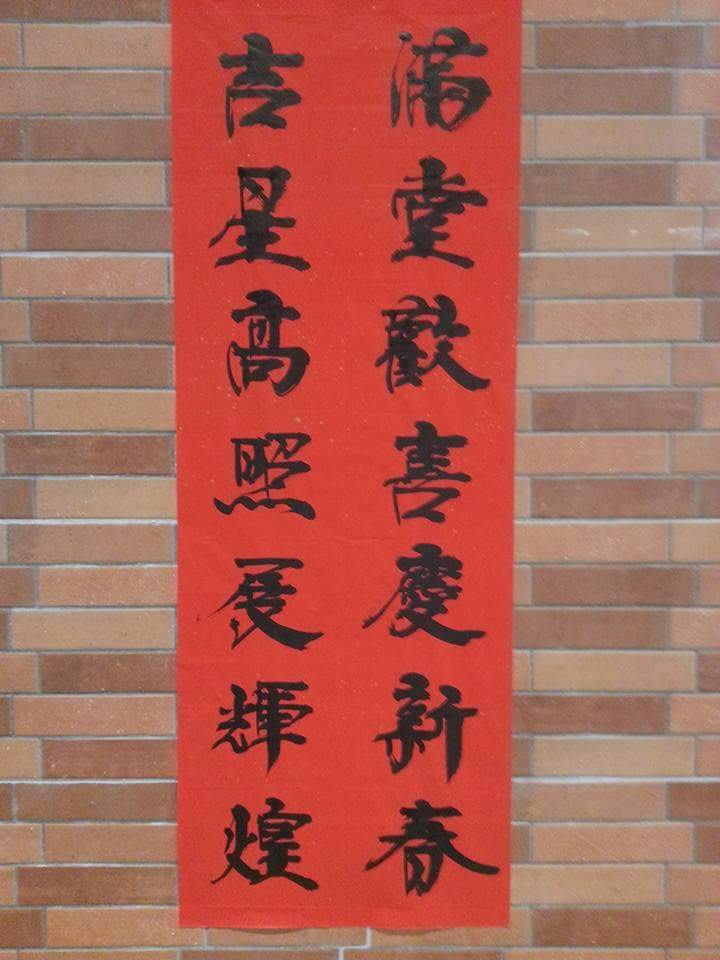 滿堂歡喜慶新春
吉星高照展輝煌